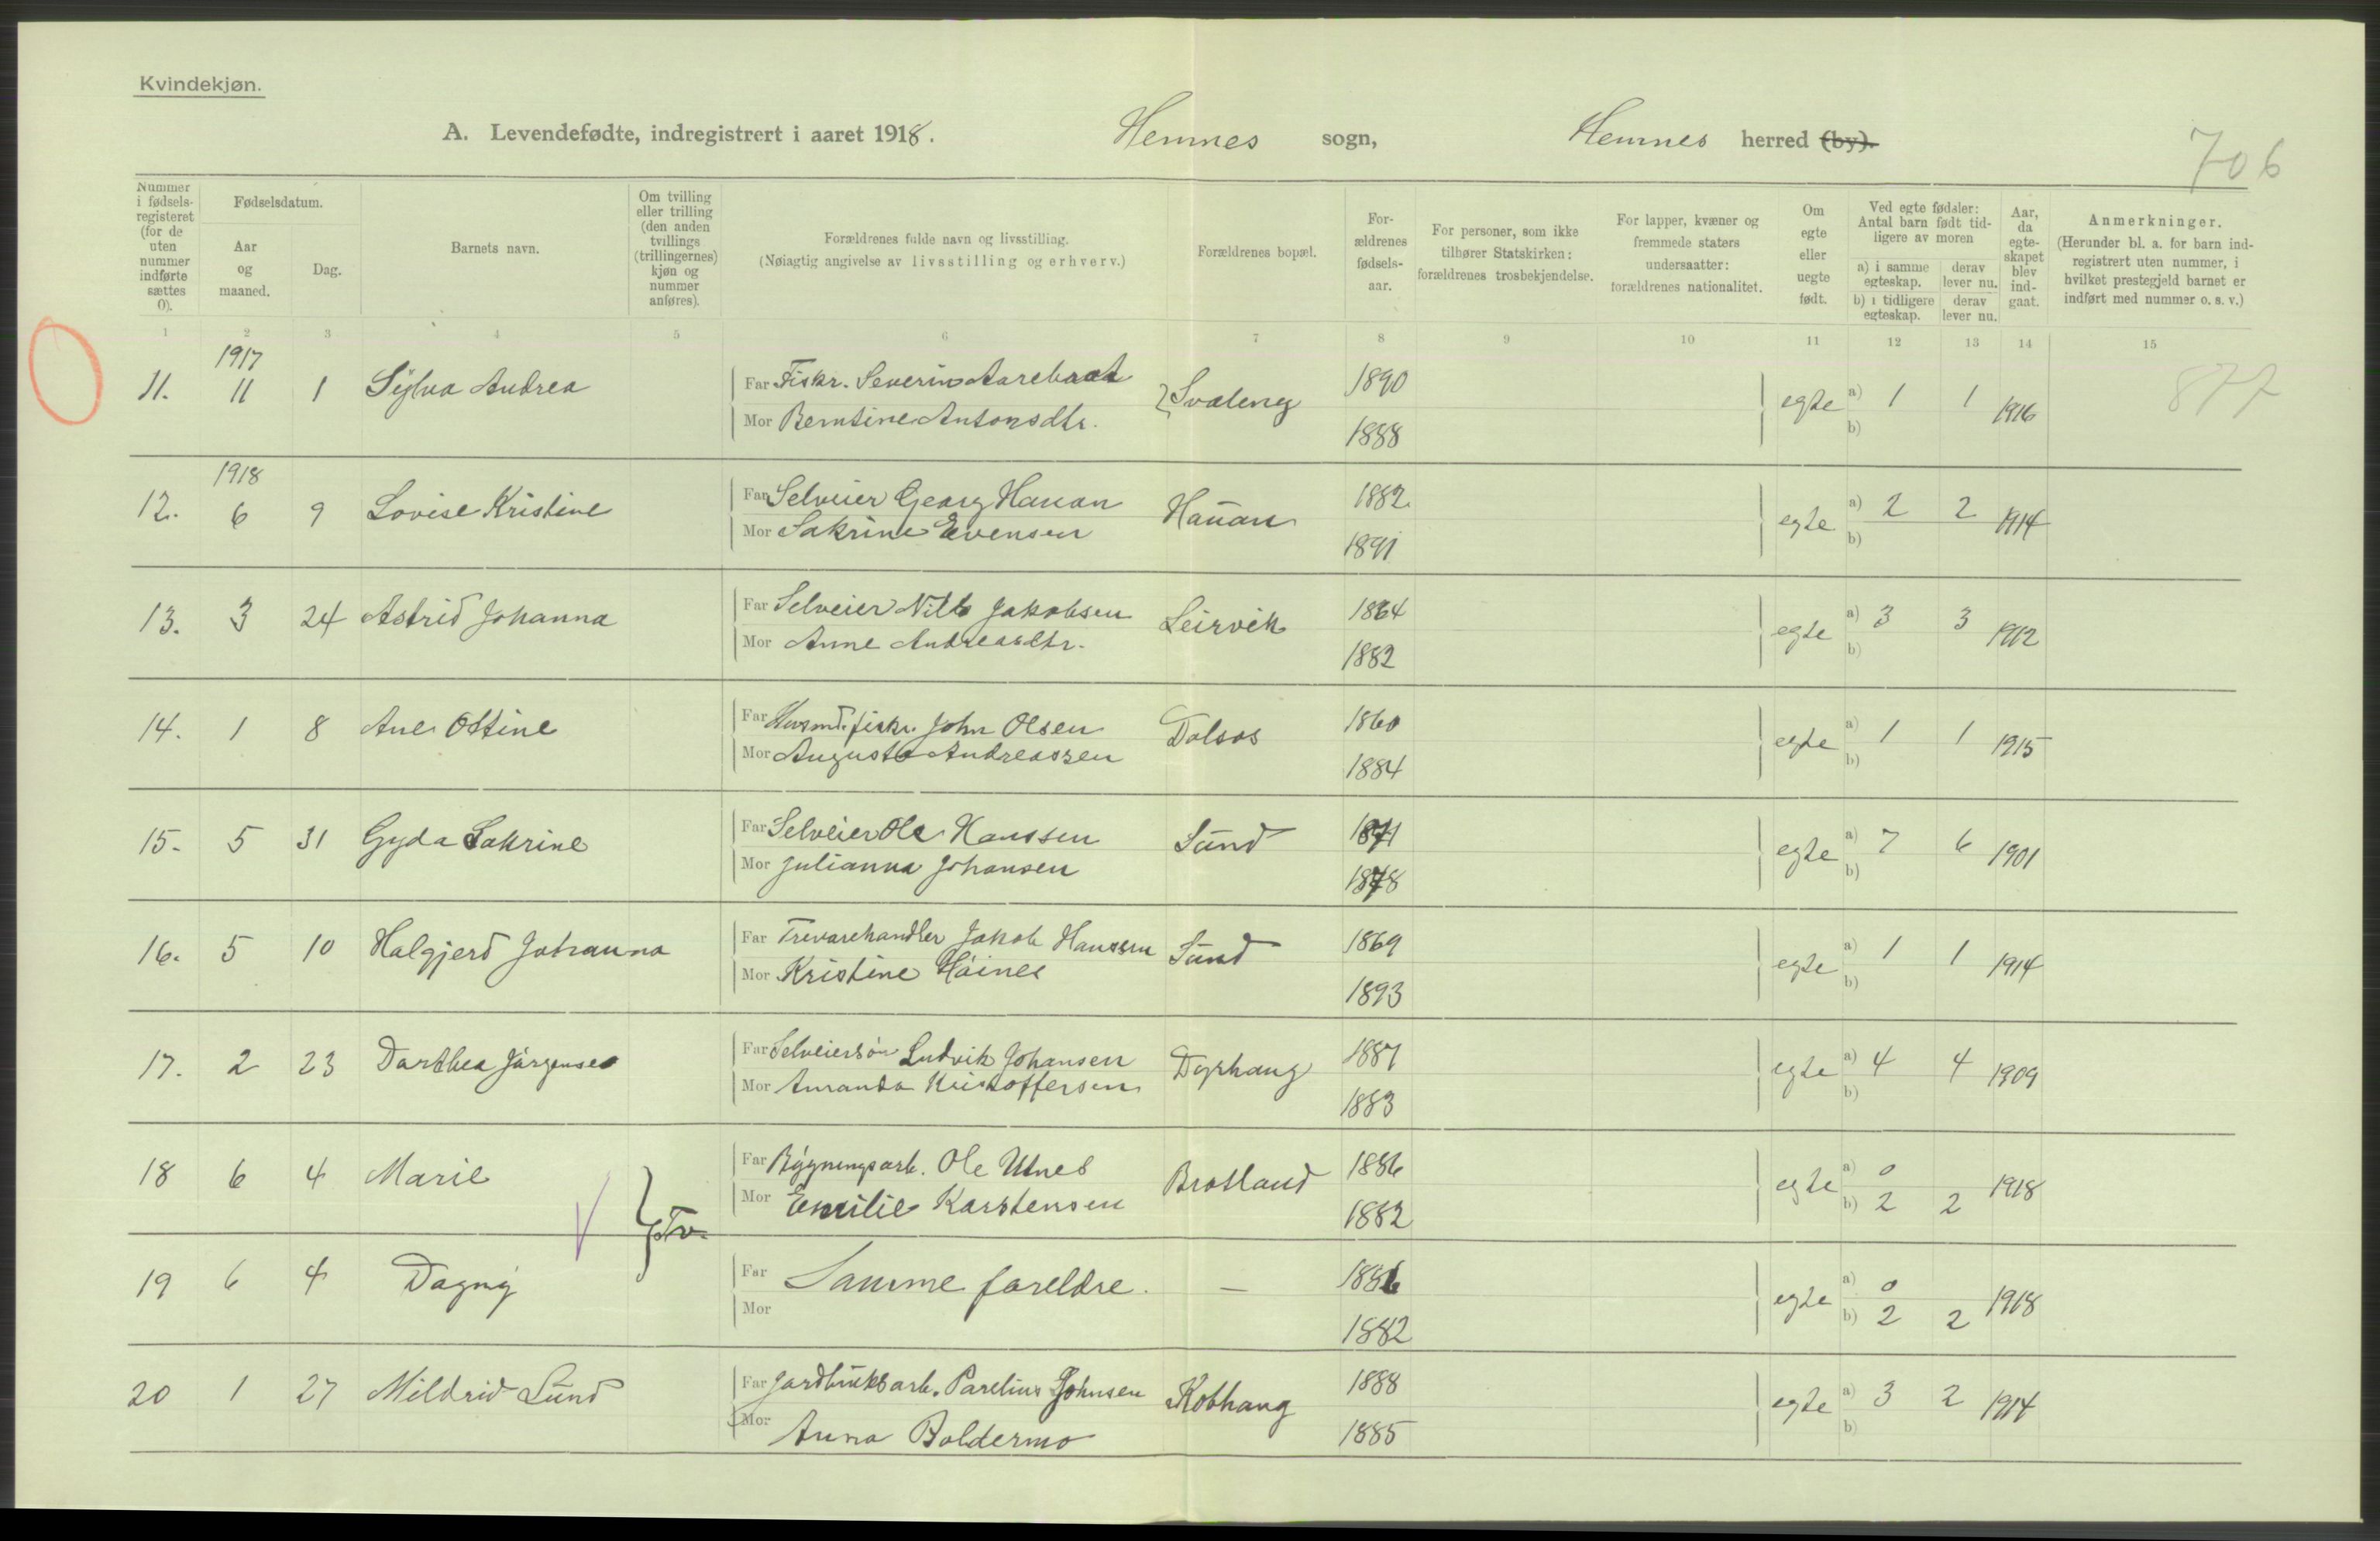 Kvindekjøn.
A. Levendefødte, indregistrert i aaret 1918. Hemnes sogn, Hemnes herred (by).
706
Nummer i fødsels-registeret (for de uten nummer indførte sættes 0).
Fødselsdatum.
Aar og maaned.
Dag.
Barnets navn.
Om tvilling eller trilling (den anden tvillings (trillingernes) kjøn og nummer anføres).
Forældrenes fulde navn og livsstilling.
(Nøiagtig angivelse av livsstilling og erhverv.)
Forældrenes bopæl.
For-ældrenes fødsels-aar.
For personer, som ikke tilhører Statskirken: forældrenes trosbekjendelse.
For lapper, kvæner og fremmede staters undersaatter: forældrenes nationalitet.
Om egte eller uegte født.
Ved egte fødsler: Antal barn født tid-ligere av moren
a) i samme egteskap. derav lever nu.
b) i tidligere egteskap. derav lever nu.
Aar, da egte-skapet blev ind-gaat.
Anmerkninger.
(Herunder bl. a. for barn ind-registrert uten nummer, i hvilket prestegjeld barnet er indført med nummer o. s. v.)
1 2 3 4 5 6 7 8 9 10 11 12 13 14 15
1917
11. 11 1 Sylva Andrea Far Fiskr. Severin Svaleng 1890 egte a) 1 1 1916 877
Mor Berntine Antonsdtr. 1888 b)
1918
12. 6 9 Lovise Kristine Far Selveier Georg Hauan Hauan 1882 egte a) 2 2 1914
Mor Sakrine Evensen 1891 b)
13. 3 24 Astrid Johanna Far Selveier Nils Jakobsen Leirvik 1864 egte a) 3 3 1912
Mor Anne Andreasdtr. 1882 b)
14. 1 8 Ane Ottine Far Husmd. fiskr. John Olsen Dalsos 1860 egte a) 1 1 1915
Mor Augusta Andreassen 1884 b)
15. 5 31 Gyda Sakrine Far Selveier Ole Hanssen Sund 1871 egte a) 7 6 1901
Mor Julianna Johansen 1878 b)
16. 5 10 Halgjerd Johanna Far Trevarehandler Jakob Hanssen Sund 1869 egte a) 1 1 1914
Mor Kristine Høines 1893 b)
17. 2 23 Darthea Jørgense Far Selveiersøn Ludvik Johansen Dyrhaug 1887 egte a) 4 4 1909
Mor Amanda Kristoffersen 1883 b)
18 6 4 Marie Far Bygningsarb. Ole Utnes Bratland 1886 egte a) 0 1918
} Tv. Mor Emilie Karstensen 1882 b) 2 2
19 6 4 Dagny Far Samme foreldre. — 1886 egte a) 0 1918
Mor 1882 b) 2 2
20 1 27 Mildrid Lund Far Jordbruksarb. Parelius Johnsen Kobhaug 1888 egte a) 3 2 1914
Mor Anna Boldermo 1885 b)